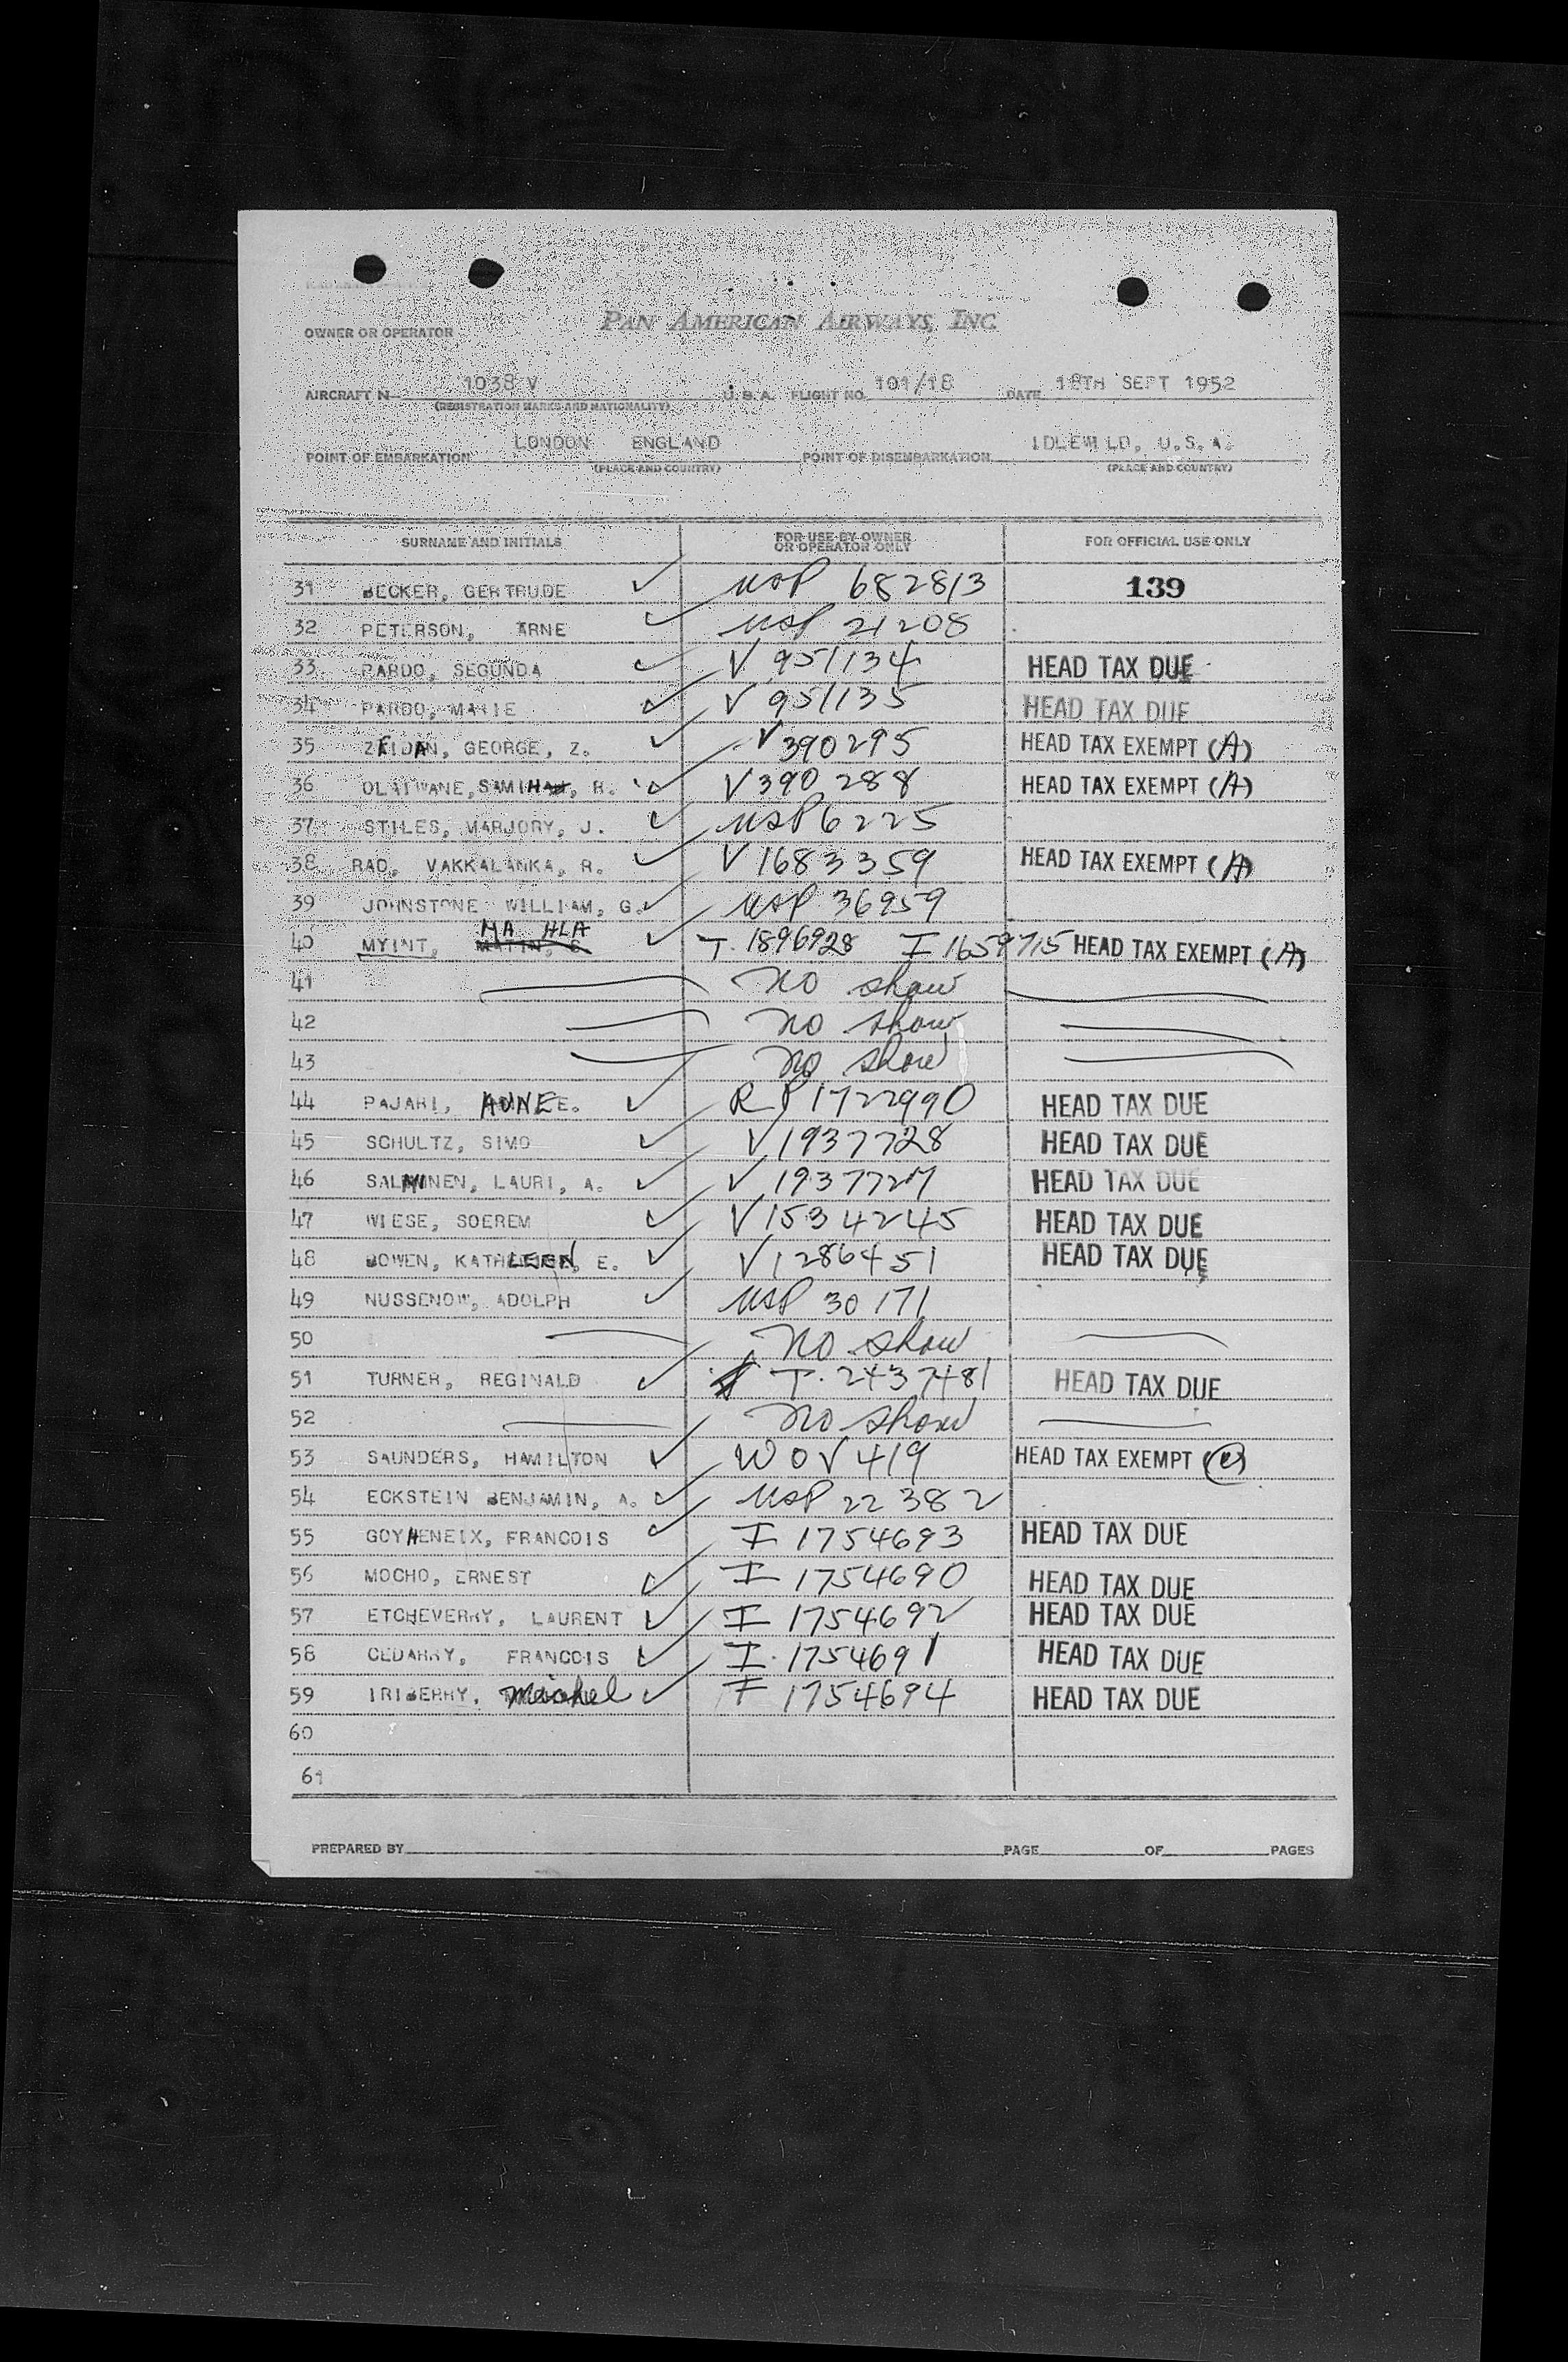 OWNER OR OPERATOR PAN AMERICAN AIRWAYS, INC.
AIRCRAFT N 1038 V U.S.A. FLIGHT NO. 101/18 DATE 18TH SEPT 1952
(REGISTRATION MARKS AND NATIONALITY)
POINT OF EMBARKATION LONDON ENGLAND POINT OF DISEMBARKATION IDLEWILD, U.S.A.
(PLACE AND COUNTRY) (PLACE AND COUNTRY)
SURNAME AND INITIALS FOR USE BY OWNER OR OPERATOR ONLY FOR OFFICIAL USE ONLY
31 BECKER, GERTRUDE ✓ USP 682813 139
32 PETERSON, ARNE ✓ USP 21208
33 PARDO, SEGUNDA ✓ V 951134 HEAD TAX DUE
34 PARDO, MARIE ✓ V 951135 HEAD TAX DUE
35 ZEIDAN, GEORGE, Z. ✓ V 390295 HEAD TAX EXEMPT (A)
36 OLAIWANE, R. ✓ V 390288 HEAD TAX EXEMPT (A)
37 STILES, MARJORY, J. ✓ USP 6225
38 RAO, VAKKALANKA, R. ✓ V 1683359 HEAD TAX EXEMPT (A)
39 JOHNSTONE WILLIAM, G. ✓ USP 36959
MA HLA
40 MYINT, MATIN, ✓ T. 1896928 I 1659715 HEAD TAX EXEMPT (A)
41 No show
42 No show
43 No show
44 PAJARI, AUNE E. ✓ RP 1722990 HEAD TAX DUE
45 SCHULTZ, SIMO ✓ V 1937728 HEAD TAX DUE
46 SALMINEN, LAURI, A. ✓ V 1937727 HEAD TAX DUE
47 WIESE, SOEREM ✓ V 1534245 HEAD TAX DUE
48 BOWEN, KATHLEEN, E. ✓ V 1286451 HEAD TAX DUE
49 NUSSENOW, ADOLPH ✓ USP 30171
50 No show
51 TURNER, REGINALD ✓ T. 2437481 HEAD TAX DUE
52 No show
53 SAUNDERS, HAMILTON ✓ WOV 419 HEAD TAX EXEMPT
54 ECKSTEIN BENJAMIN, A. ✓ USP 22382
55 GOYHENEIX, FRANCOIS ✓ I 1754693 HEAD TAX DUE
56 MOCHO, ERNEST ✓ I 1754690 HEAD TAX DUE
57 ETCHEVERRY, LAURENT ✓ I 1754692 HEAD TAX DUE
58 CEDARRY, FRANCOIS ✓ I. 1754691 HEAD TAX DUE
59 IRIBERRY, ✓ I 1754694 HEAD TAX DUE
60
61
PREPARED BY PAGE OF PAGES